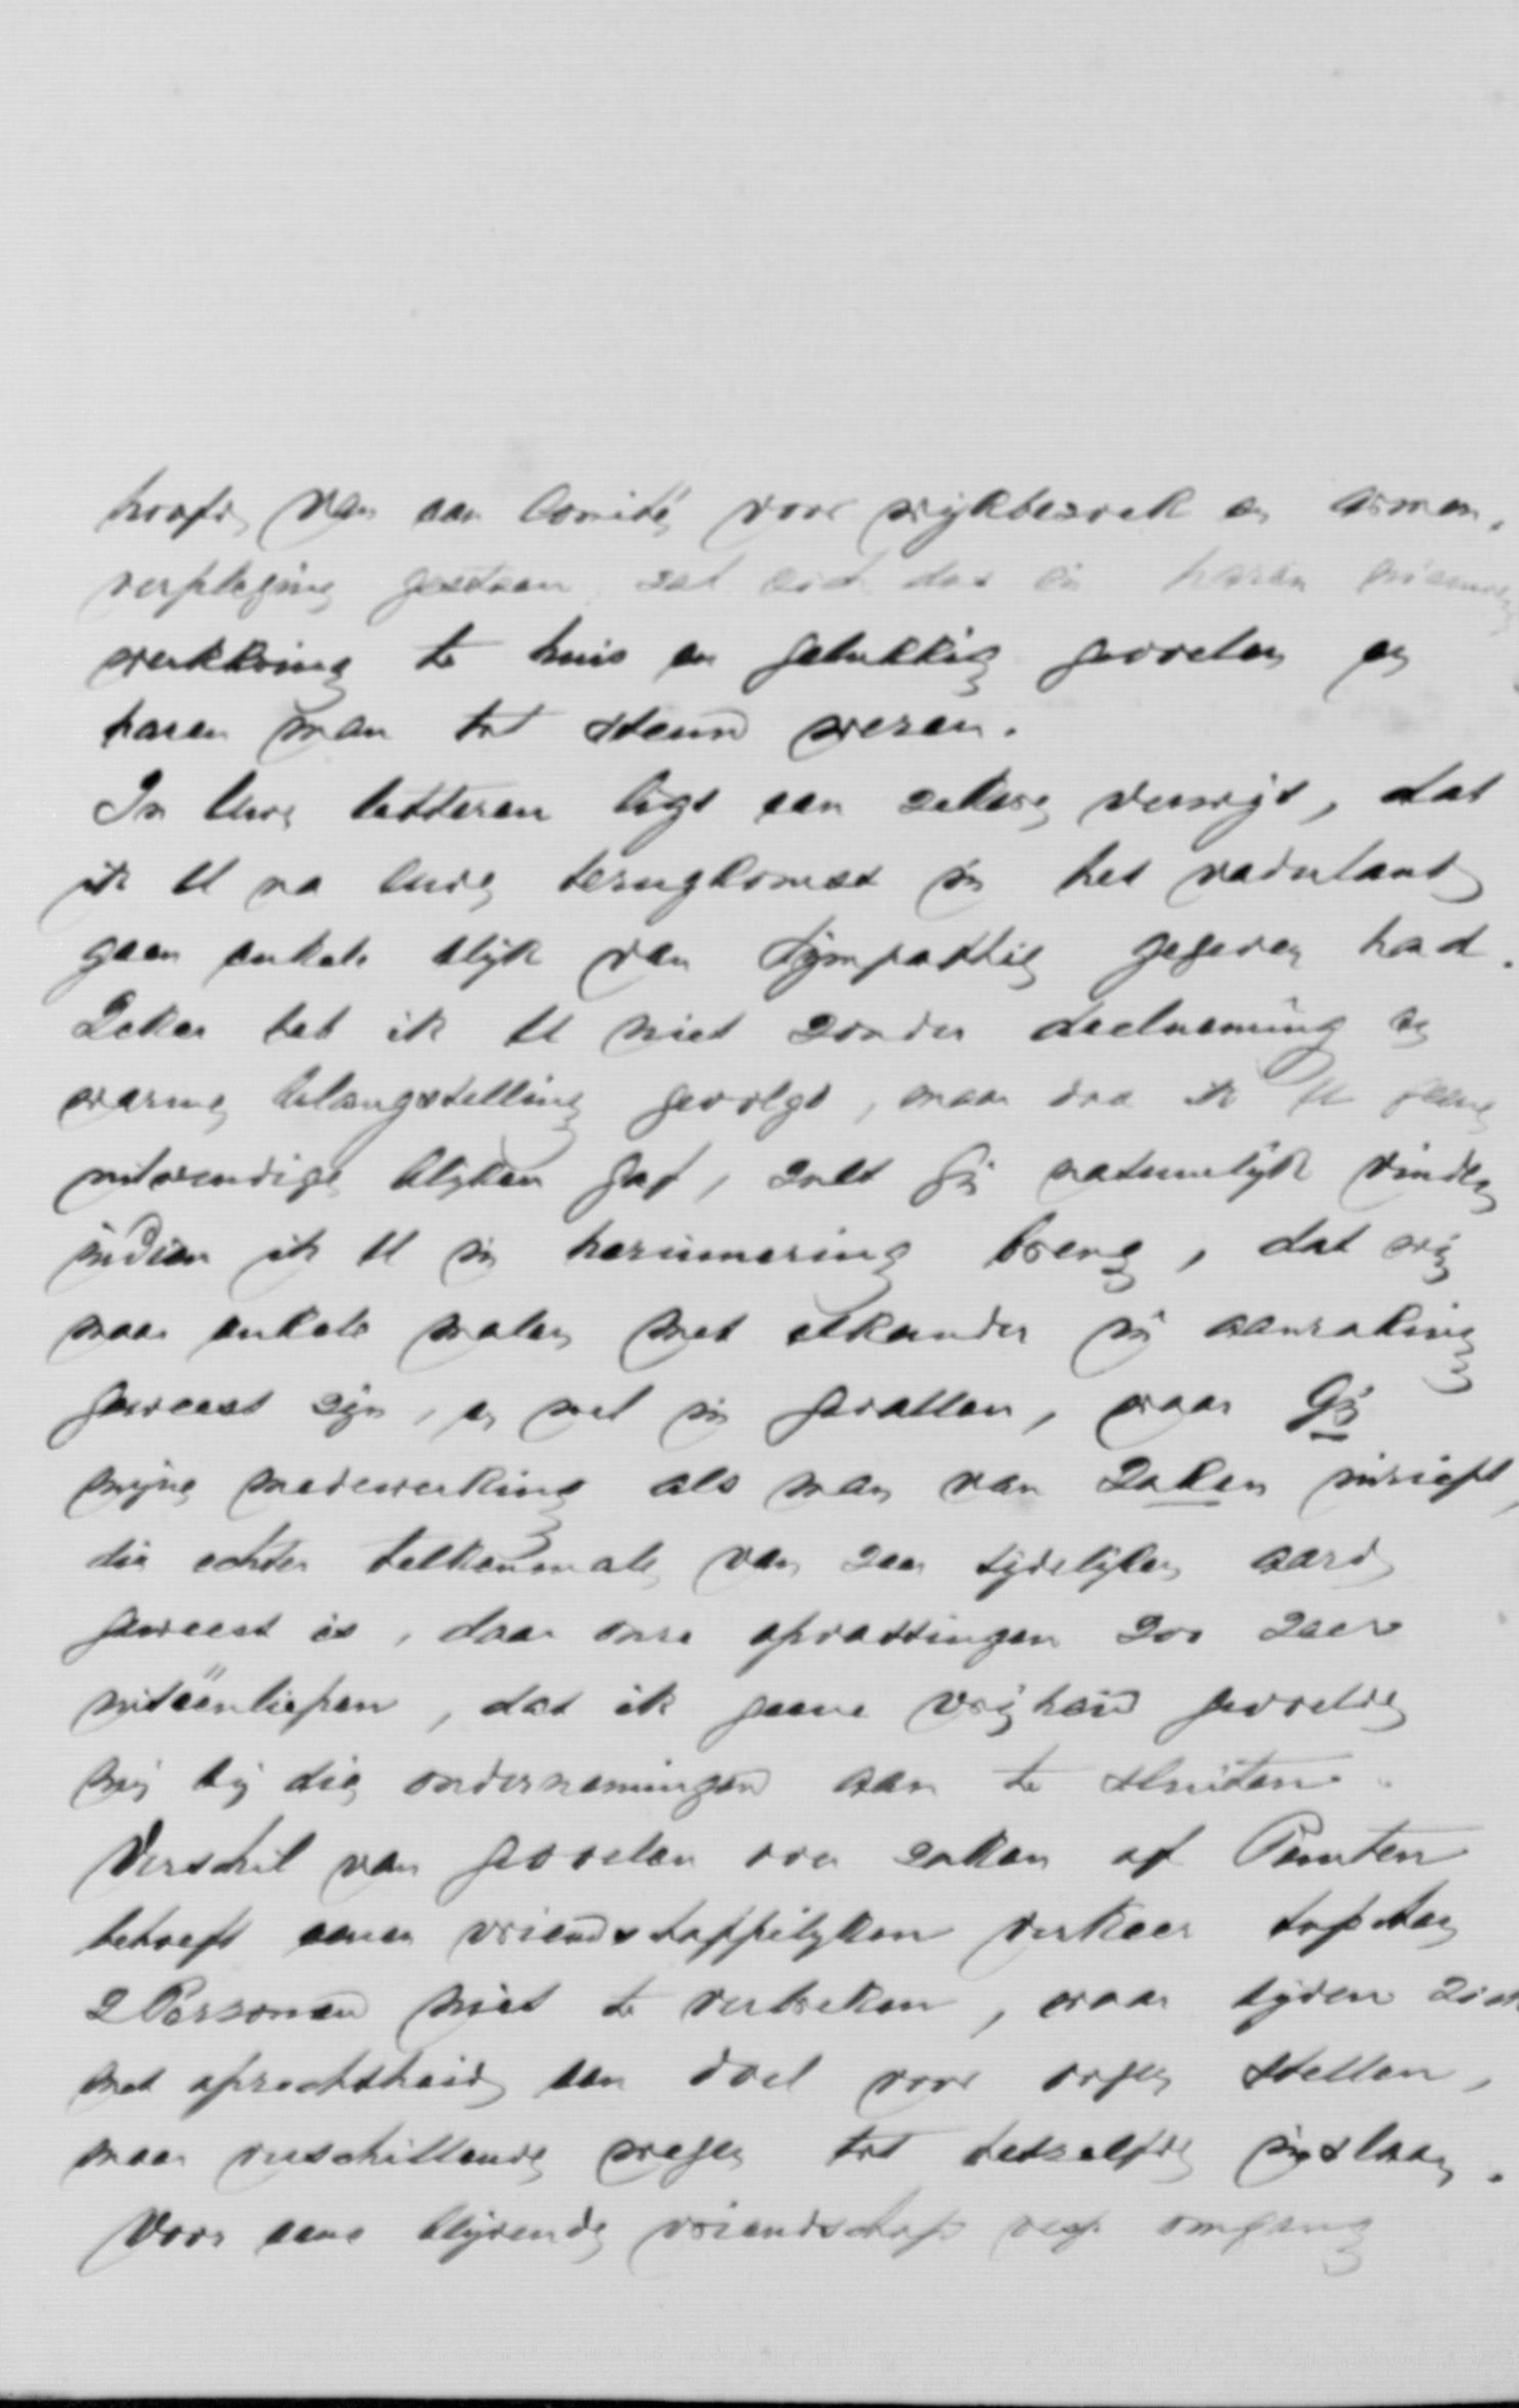 hoofd van een Comité voor wijkbezoek en armen,
verpleging gestaan, zal zich dus in haren nieuwen
werkkring te huis en gelukkig gevoelen en
haren man tot steun wezen.
In Uwe letteren ligt een zeker verwijt, dat
ik U na Uwe terugkomst in het vaderland
geen enkele blijk van sympathie gegeven had.
Zeker heb ik U niet zonder deelneming en
warme belangstelling gevolgd, maar dat ik U geene
uitwendige blijken gaf, zult gij natuurlijk vinden
indien ik U in herinnering breng, dat wij
maar enkele malen met elkander in aanraking
geweest zijn, en wel in gevallen, waar Gij
mijne medewerking als man van zaken inriept,
die echter telkenmale van zeer tijdelijken aard
geweest is, daar onze opvattingen zoo zeer
uitéénliepen, dat ik geene vrijheid gevoelde
mij bij die ondernemingen aan te sluiten.
Verschil van gevoelen over zaken of Punten
behoeft eenen vriendschappelijken verkeer tusschen
2 Personen niet te verbreken, waar beiden zich
met oprechtheid een doel voor oogen stellen,
maar verschillende wegen tot hetzelfde inslaan.
Voor eene blijvende vriendschap resp omgang